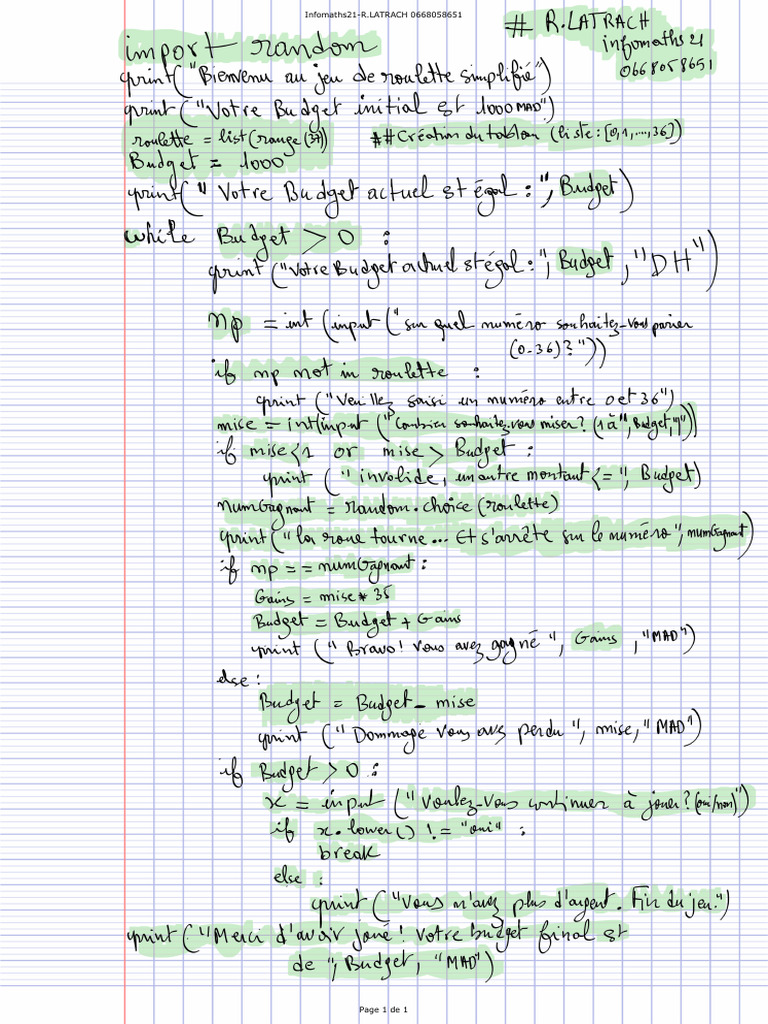 Infomaths21-R.LATRACH 0668058651
# R.LATRACH
infomaths 21
0668058651
import random
print("Bienvenu au jeu de roulette simplifié")
print("Votre Budget initial est 1000 MAD")
roulette = list(range(37)) ## Création du tableau (liste : [0,1,...,36])
Budget = 1000
print(" Votre Budget actuel st égal : ", Budget)
while Budget > 0 :
print("Votre Budget actuel st égal : ", Budget, "DH")
np = int (input("sur quel numéro souhaitez-vous parier
(0-36)? "))
if np not in roulette :
print ("Veuillez saisi un numéro entre 0 et 36")
mise = int(input ("Combien souhaitez-vous miser? (1 à", Budget, ")"))
if mise<1 or mise > Budget :
print (" invalide, un autre montant <= ", Budget)
numGagnant = random.choice (roulette)
print("la roue tourne... Et s'arrête sur le numéro", numGagnant)
if np == numGagnant :
Gains = mise * 35
Budget = Budget + Gains
print (" Bravo! vous avez gagné ", Gains , "MAD")
else :
Budget = Budget - mise
print (" Dommage vous avs perdu ", mise, "MAD")
if Budget > 0 :
x = input (" Voulez-vous continuer à jouer? (oui/non)")
if x.lower() != "oui" :
break
else :
print("Vous n'avez plus d'argent. Fin du jeu.")
print("Merci d'avoir joué! Votre budget final st
de ", Budget, "MAD")
Page 1 de 1